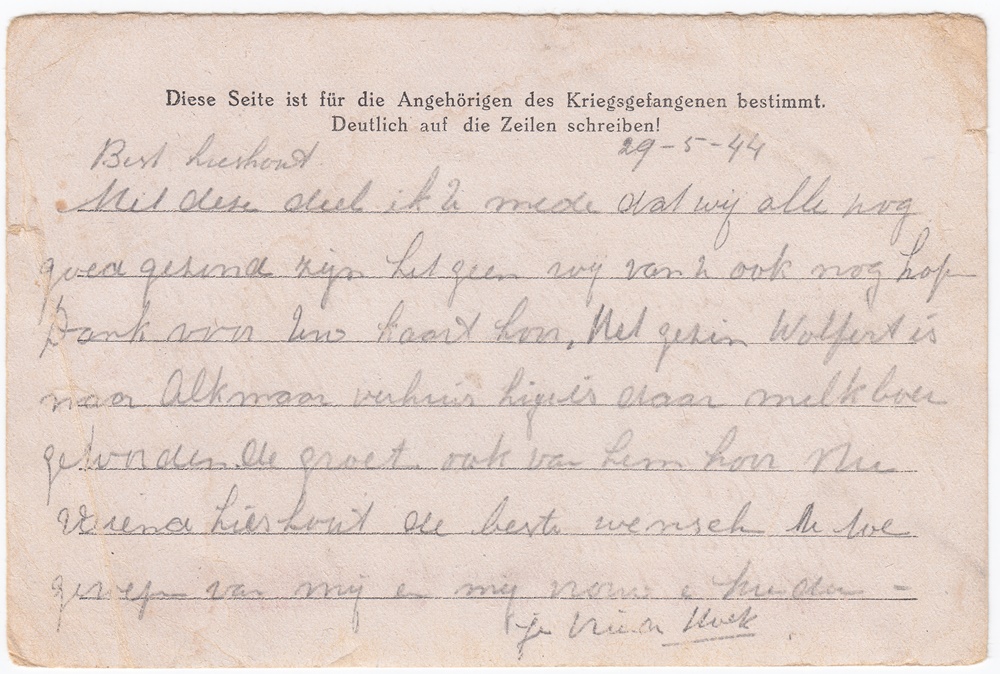 Diese Seite ist für die Angehörigen des Kriegsgefangenen bestimmt.
Deutlich auf die Zeilen schreiben!
Best Lieshout 29-5-44
Met deze deel ik U mede dat wij alle nog
goed gezond zijn het geen wij van U ook nog hop
Dank voor Uw kaart hoor, Het gezin Wolfert is
naar Alkmaar verhuis hij is daar melkboer
geworden de groet ook van hem hoor Nu
Vriend Lieshout de beste wensch U toe
van mij en mij vrouw e kinder -
je Vriend